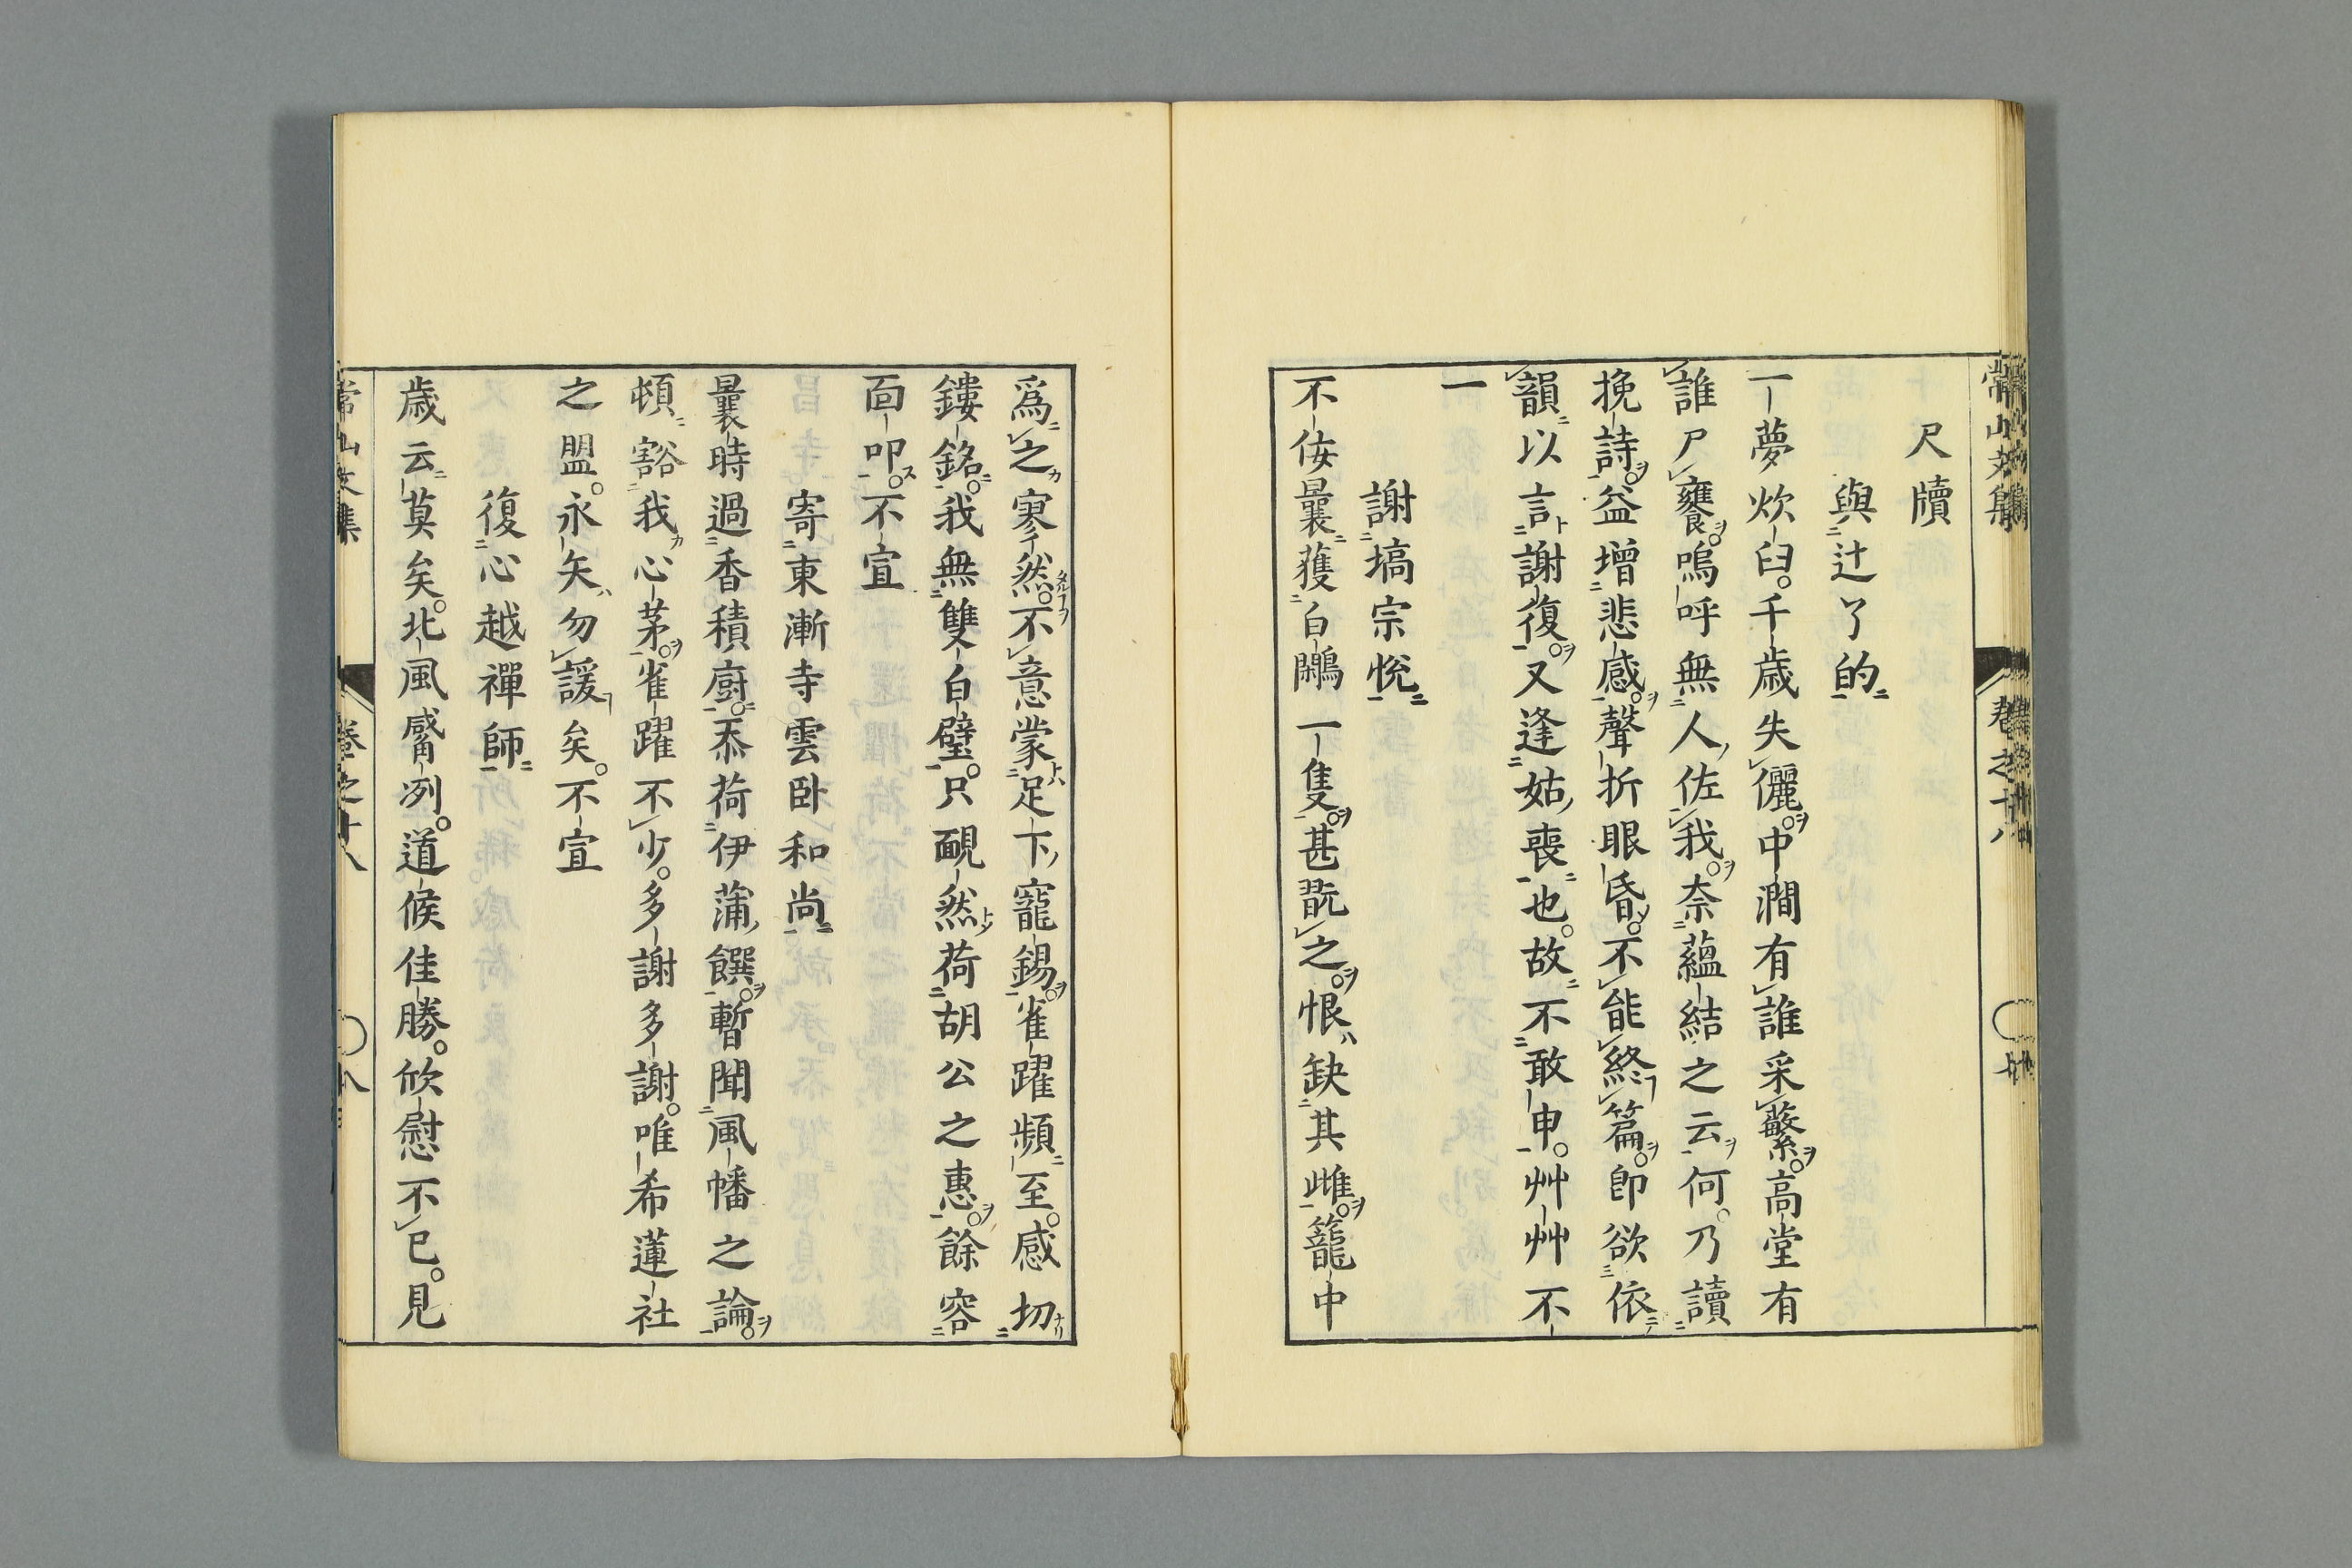 尺牘
與辻了的
一夢炊臼。千歲失儷。中澗有誰采蘩。高堂有
誰尸饔。嗚呼無人佐我。奈蘊結之云何。乃讀
挽詩。益增悲感。聲折眼昏。不能終篇。卽欲依
韻以言謝復。又逢姑喪也。故不敢申。艸艸不
一
謝塙宗悅
不佞曩獲白鷴一隻。甚翫之。恨缺其雌。籠中
爲之寥然。不意蒙足下寵錫。雀躍頻至。感切
鏤銘。我無雙白璧。只靦然荷胡公之惠。餘容
面叩。不宣
寄東漸寺雲卧和尚
曩時過香積廚。忝荷伊蒲饌。暫聞風幡之論。
頓豁我心茅。雀躍不少。多謝多謝。唯希蓮社
之盟。永矢勿諼矣。不宣
復心越禪師
歲云莫矣。北風觱冽。道候佳勝。欣慰不已。見
常山文集
卷之十八